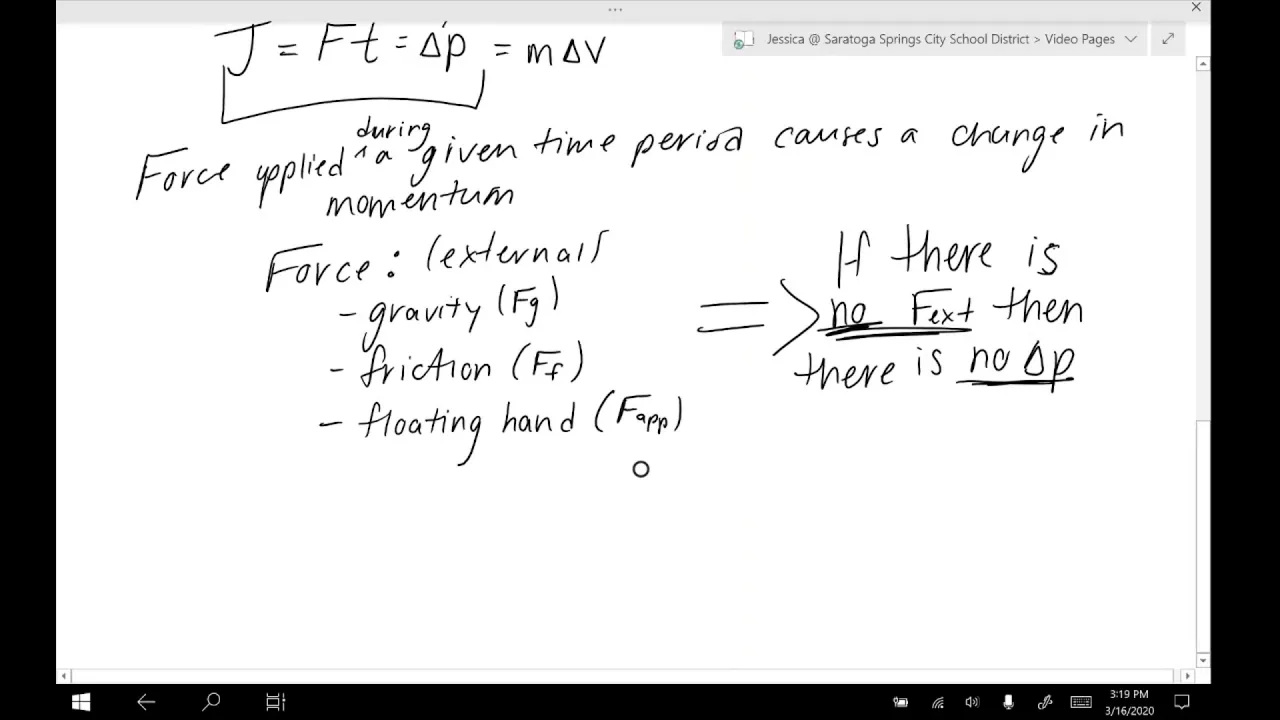 J = Ft = Δp = mΔV
Jessica @ Saratoga Springs City School District > Video Pages
during
Force applied ^ a given time period causes a change in
momentum
Force: (external)
- gravity (Fg)
- friction (Ff)
- floating hand (Fapp)
=> If there is
no Fext then
there is no Δp
3:19 PM
3/16/2020